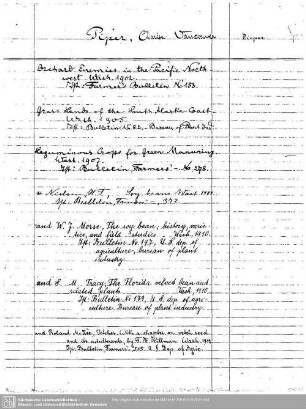 Piper, Charles Vancouver
Orchard Enemies in the Pacific North
west. Wash. 1902.
Farmers' Bulletin N. 153.
Grass lands of the South Alaska Coast
Wash. 1905.
Bulletin N. 82. Bureau of Plant Ind.
Leguminous Crops for Green Manuring
Wash. 1907.
Bulletin Farmers' - No 278.
Nielsen, H. T., Soy beans Wash. 1909.
Bulletin, Farmers' - 372
and W. J. Morse, The soy bean; history, varie-
ties, and field studies. Wash. 1910.
Bulletin No. 197, U. S. dep. of
agriculture, bureau of plant
industry.
and S. M. Tracy, The Florida velvet bean and
related plants. Wash. 1910.
Bulletin No 179, U. S. dep. of agri-
culture. Bureau of plant industry.
and Roland McKee, Vetches. With a chapter on vetch seed
and its adulterants, by F. H. Hillman. Wash.
Bulletin Farmers' U. S. Dep. of Agric.